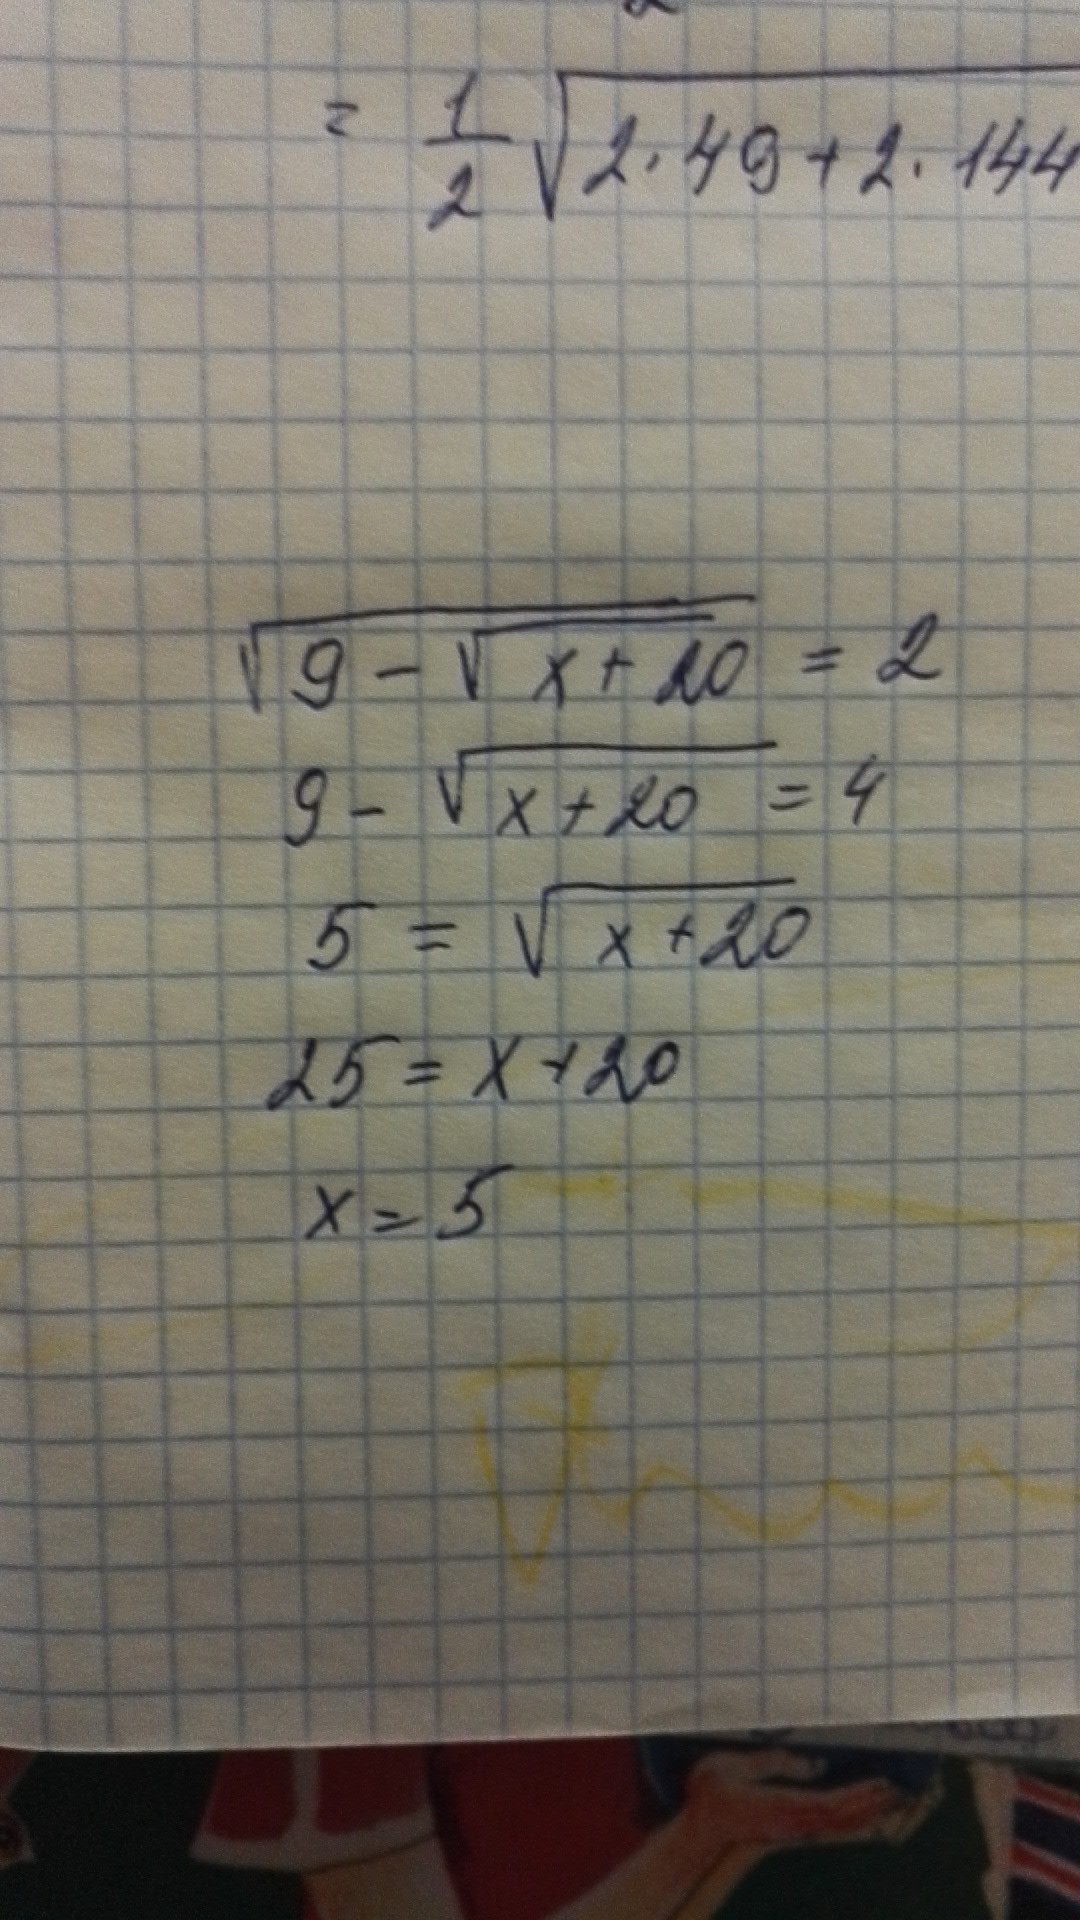 = 1/2 √(2·49+2·144
√(9-√(x+20)) = 2
9-√(x+20) = 4
5 = √(x+20)
25 = x+20
x = 5